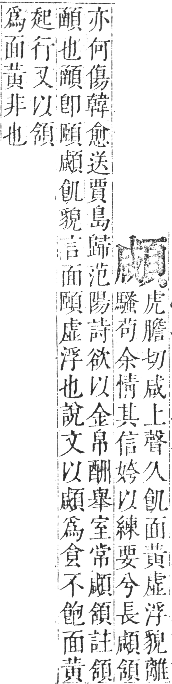 顑
虎膽切咸上聲久飢面黃虛浮貌離
騷苟余情其信姱以練要兮長顑頷
亦何傷韓愈送賈島歸范陽詩欲以金帛酬舉室常顑頷註頷
顄也顄卽頤顑飢貌言面頤虛浮也說文以顑爲食不飽面黃
起行又以頷
爲面黃非也